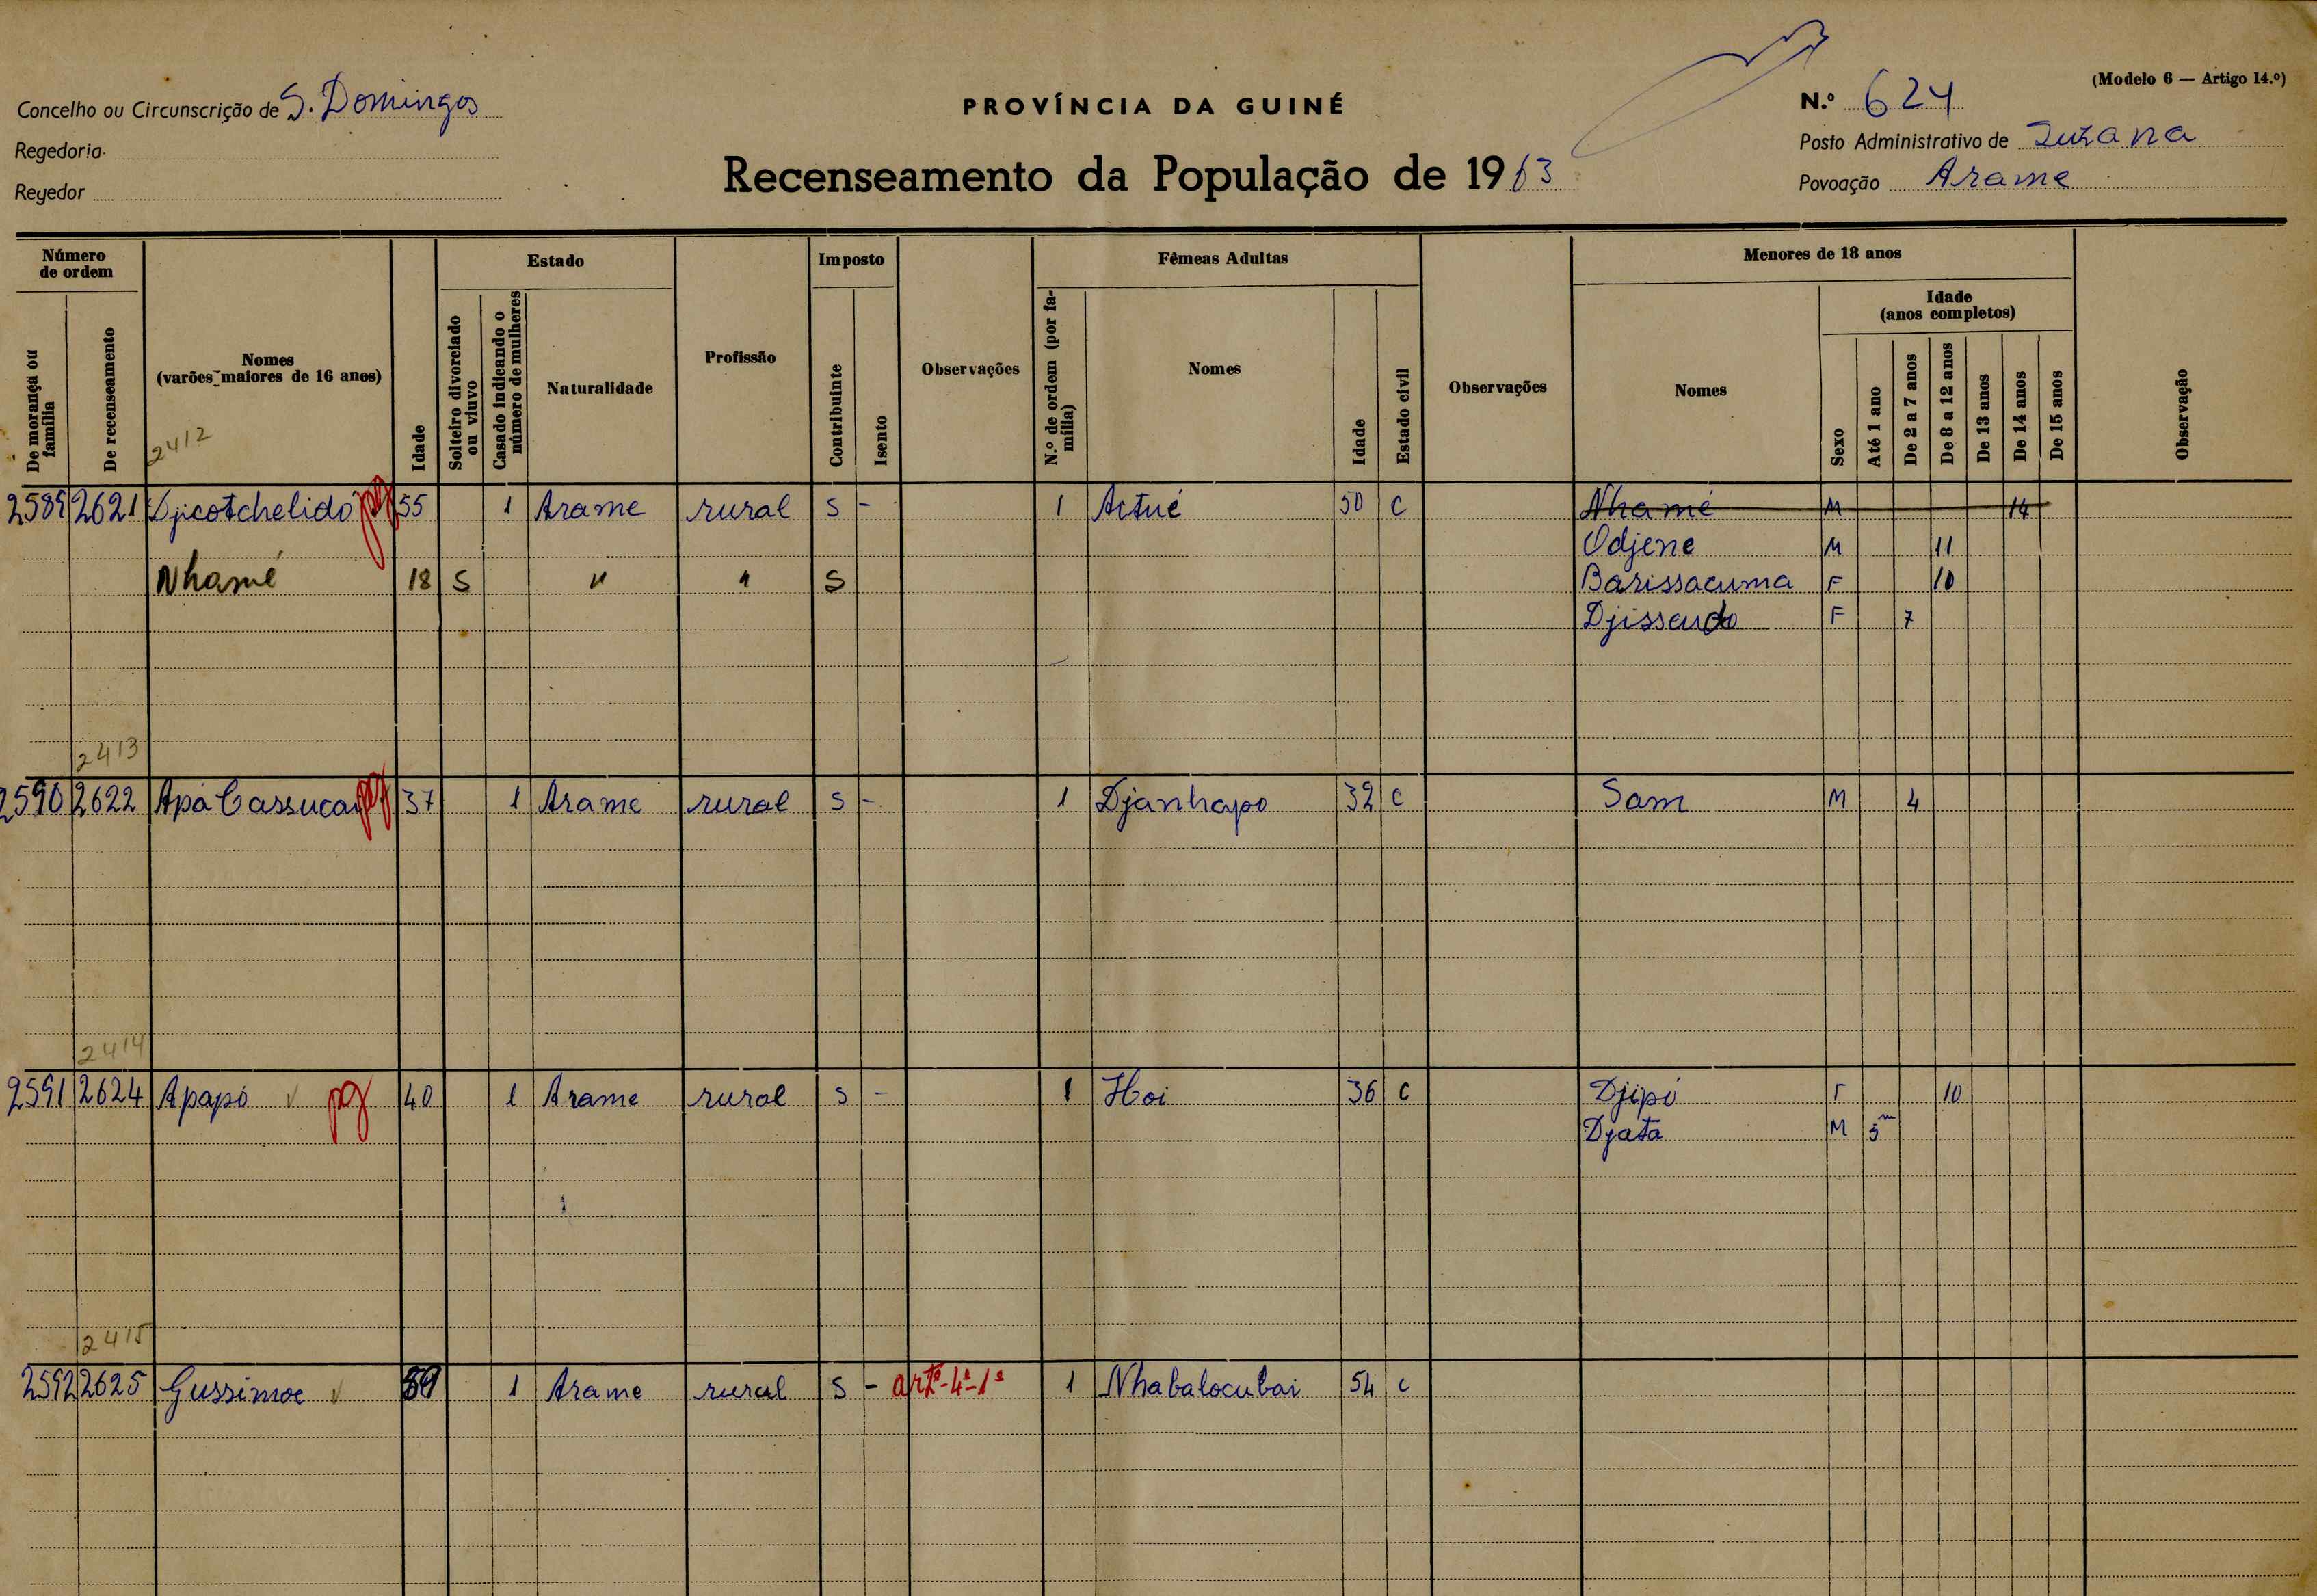 (Modelo 6 — Artigo 14.º)
Concelho ou Circunscrição de S. Domingos
PROVÍNCIA DA GUINÉ
N.º 624
Regedoria
Posto Administrativo de Suzana
Recenseamento da População de 1963
Regedor
Povoação Arame
Número de ordem
Estado
Imposto
Fêmeas Adultas
Menores de 18 anos
Idade (anos completos)
De morança ou família
De recenseamento
Nomes (varões maiores de 16 anos)
Idade
Solteiro divorciado ou viuvo
Casado indicando o número de mulheres
Naturalidade
Profissão
Contribuinte
Isento
Observações
N.º de ordem (por família)
Nomes
Idade
Estado civil
Observações
Nomes
Sexo
Até 1 ano
De 2 a 7 anos
De 8 a 12 anos
De 13 anos
De 14 anos
De 15 anos
Observação
2412
2589 2621 Djicotchelidó pg 55 1 Arame rural S - 1 Actué 50 C Nhamé M 14
Odjene M 11
Nhamé 18 S " " S Barissacuma F 10
Djissendo F 7
2413
2590 2622 Apá Cassucai pg 37 1 Arame rural S - 1 Djanhapo 32 C Sam M 4
2414
2591 2624 Apapó pg 40 1 Arame rural S - 1 Hoi 36 C Djipó F 10
Djata M 5m
2415
2592 2625 Gussimoe 59 1 Arame rural S - artº-4º-1º 1 Nhabalocubai 54 C